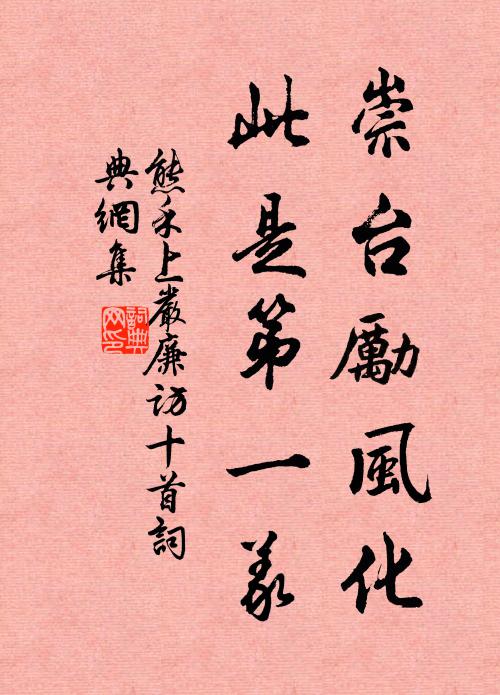 崇台勵風化
此是第一義
熊禾上嚴廉訪十首詞
典網集
詞典網印